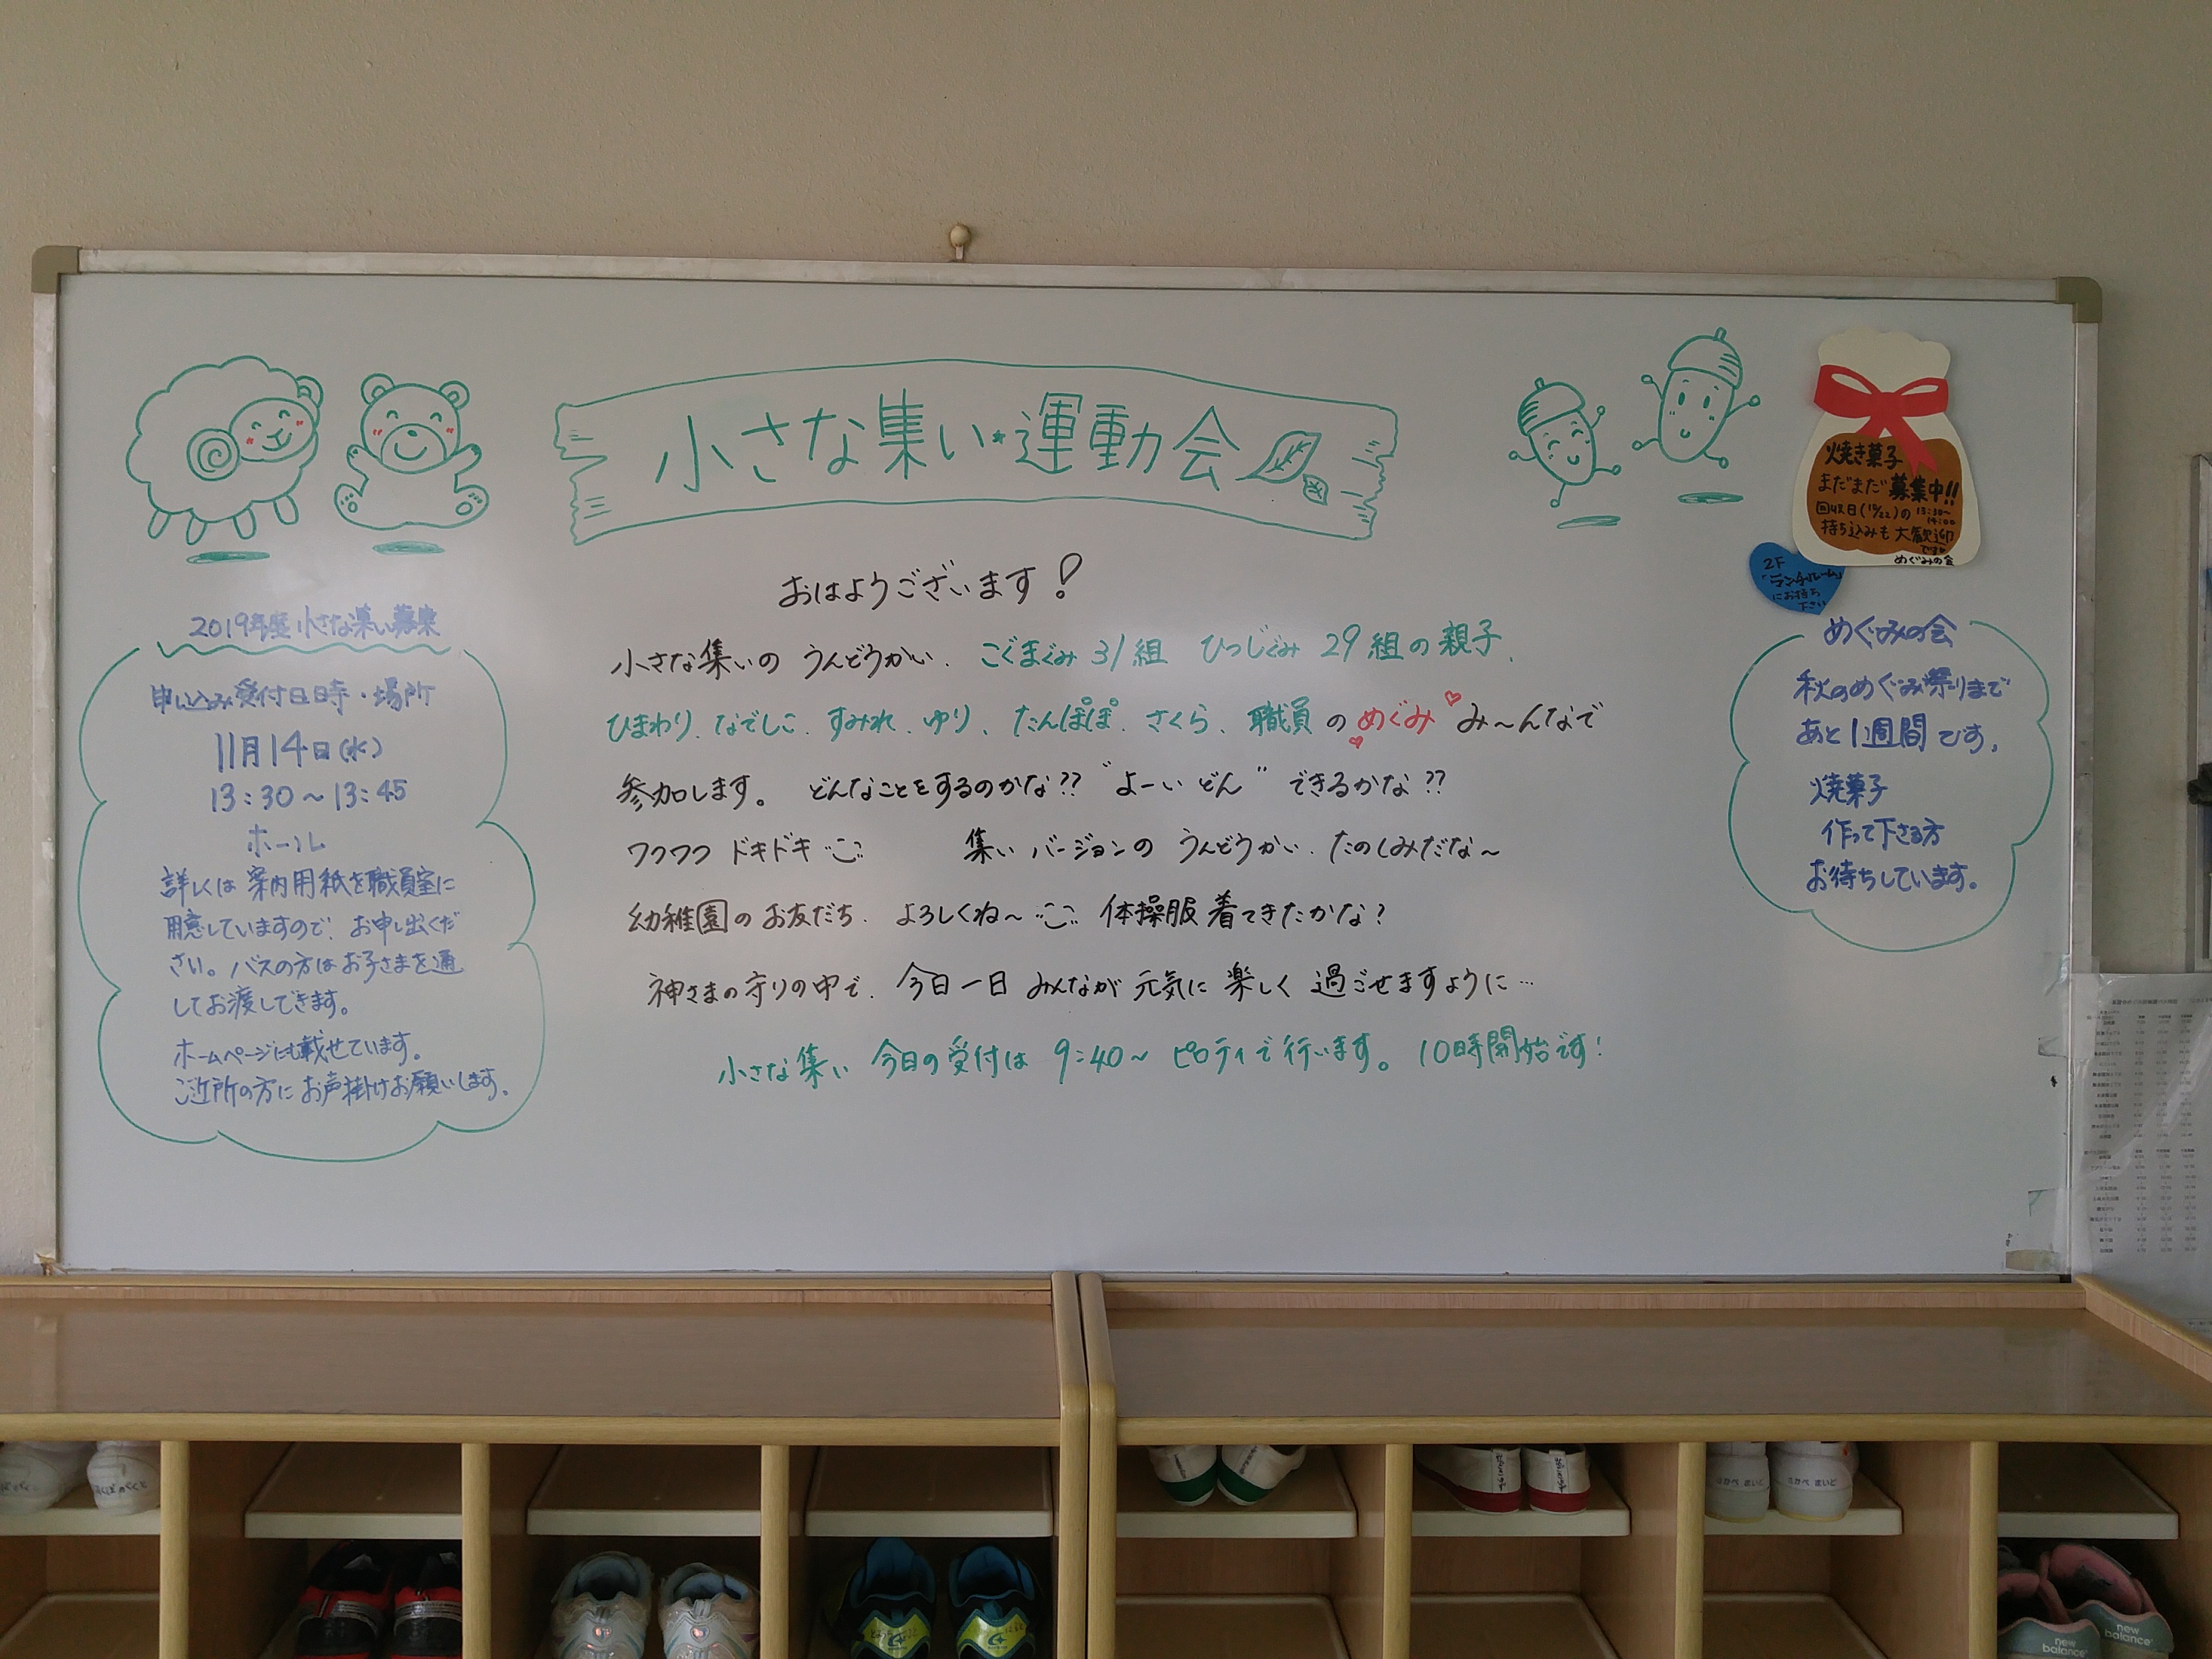 小さな集い・運動会
おはようございます!
小さな集いの うんどうかい、こぐまぐみ 31組 ひつじぐみ 29組の親子、
ひまわり、なでしこ、すみれ、ゆり、たんぽぽ、さくら、職員の めぐみ み〜んなで
参加します。 どんなことをするのかな?? "よーいどん" できるかな??
ワクワク ドキドキ 集い バージョンの うんどうかい、たのしみだな〜
幼稚園の お友だち、よろしくね〜 体操服 着てきたかな?
神さまの守りの中で、今日一日 みんなが 元気に 楽しく 過ごせますように…
小さな集い 今日の受付は 9:40〜 ピロティで行います。10時開始です!
2019年度 小さな集い募集
申し込み受付日時・場所
11月14日(水)
13:30〜13:45
ホール
詳しくは 案内用紙を職員室に
用意していますので、お申し出くだ
さい。バスの方はお子さまを通
してお渡しできます。
ホームページにも載せています。
ご近所の方に お声掛けお願いします。
焼き菓子
まだまだ 募集中!!
回収日(10/22)の 13:30〜
14:00
持ち込みも 大歓迎
です
めぐみの会
2F
「ランチルーム」
にお持ち
下さい
めぐみの会
秋のめぐみ祭りまで
あと1週間です。
焼菓子
作って下さる方
お待ちしています。
new balance
new balance